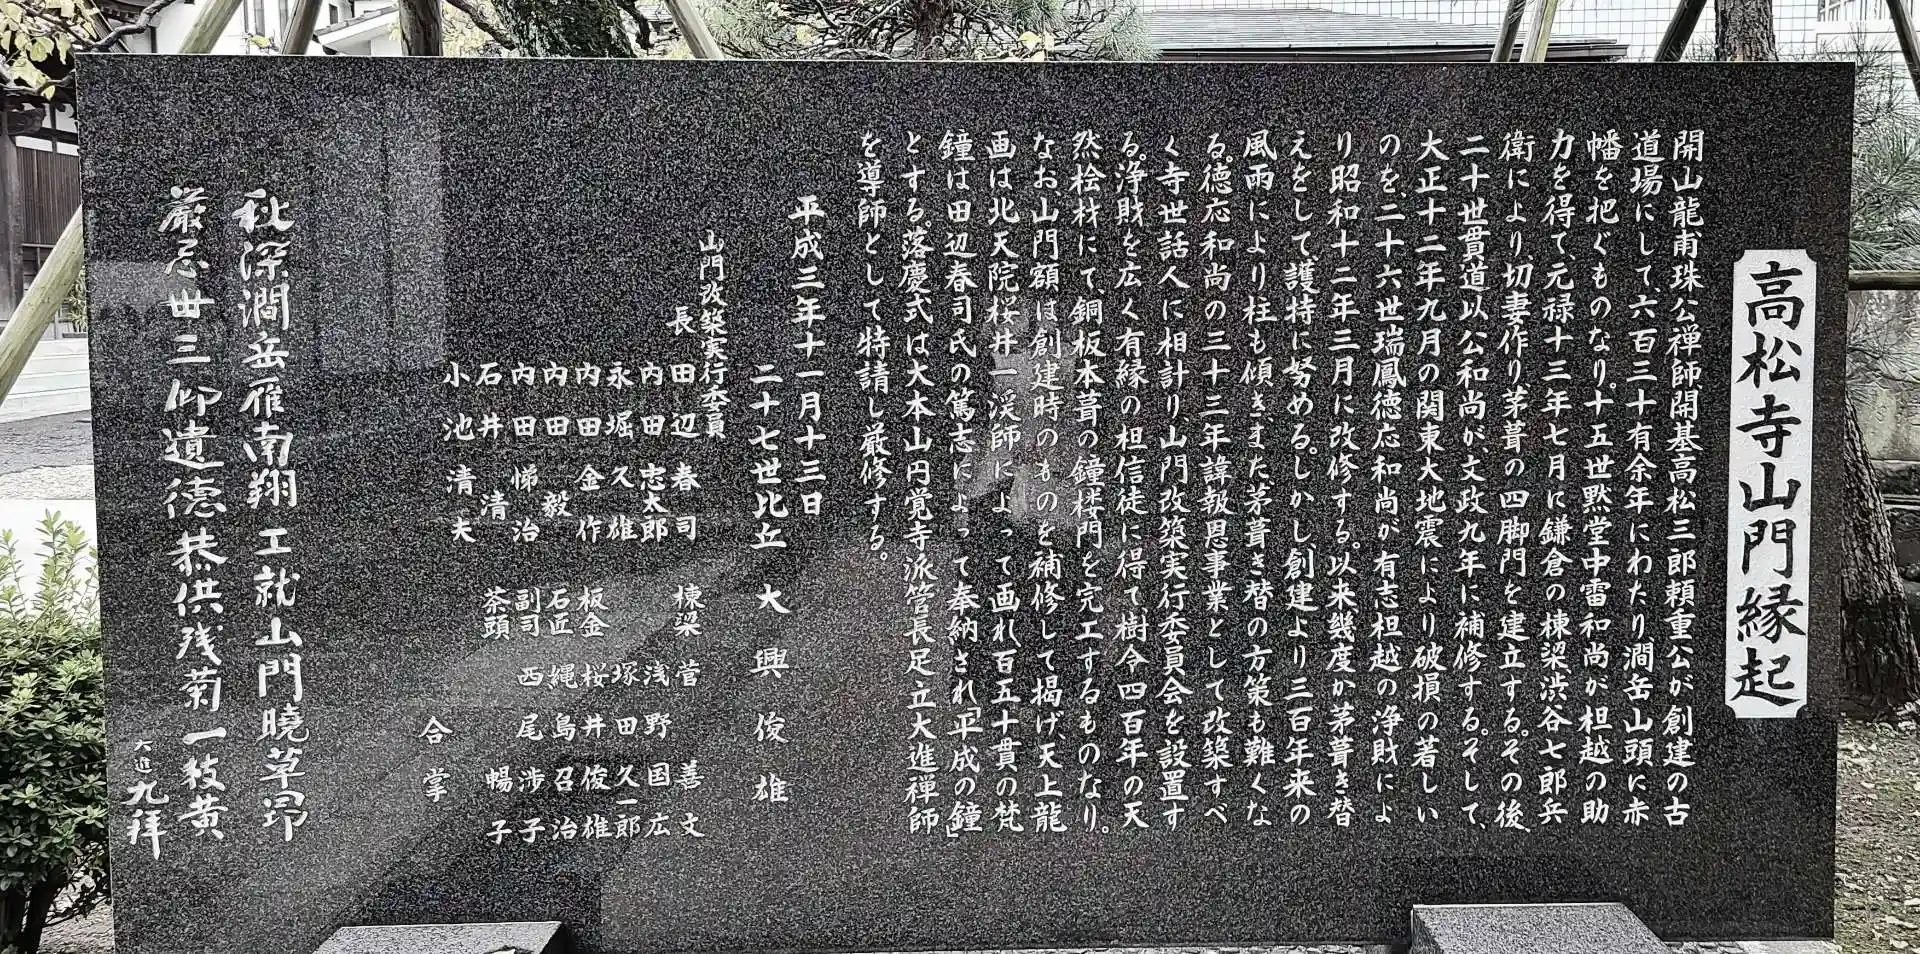 高松寺山門縁起
開山龍甫珠公禅師、開基高松三郎頼重公が創建の古
道場にして、六百三十有余年にわたり、澗岳山頭に赤
幡を把ぐものなり。十五世黙堂中雷和尚が柦越の助
力を得て、元禄十三年七月に鎌倉の棟梁渋谷七郎兵
衛により、切妻作り、茅葺の四脚門を建立する。その後、
二十世貫道以公和尚が、文政九年に補修する。そして、
大正十二年九月の関東大地震により破損の著しい
のを、二十六世瑞鳳徳応和尚が有志柦越の浄財によ
り昭和十二年三月に改修する。以来幾度か茅葺き替
えをして、護持に努める。しかし、創建より三百年来の
風雨により柱も傾き、また、茅葺き替の方策も難くな
る。徳応和尚の三十三年諱報恩事業として改築すべ
く寺世話人に相計り、山門改築実行委員会を設置す
る。浄財を広く有縁の柦信徒に得て、樹令四百年の天
然桧材にて、銅板本葺の鐘楼門を完工するものなり。
なお山門額は創建時のものを補修して掲げ、天上龍
画は北天院桜井一渓師によって画れ、百五十貫の梵
鐘は田辺春司氏の篤志によって奉納され、「平成の鐘」
とする。落慶式は大本山円覚寺派管長足立大進禅師
を導師として特請し厳修する。
平成三年十一月十三日
二十七世比丘　大興俊雄
山門改築実行委員
長　田辺春司　棟梁　菅　善文
内田忠太郎　浅野国広
永堀久雄　塚田久一郎
内田金作　板金　桜井俊雄
内田　毅　石匠　縄島召治
内田悌治　副司　西尾渉
石井　清　茶頭　暢子
小池清夫
合掌
秋深澗岳雁南翔工就山門曉草昂
厳忌丗三仰遺德恭供残菊一枝黄
大進九拝